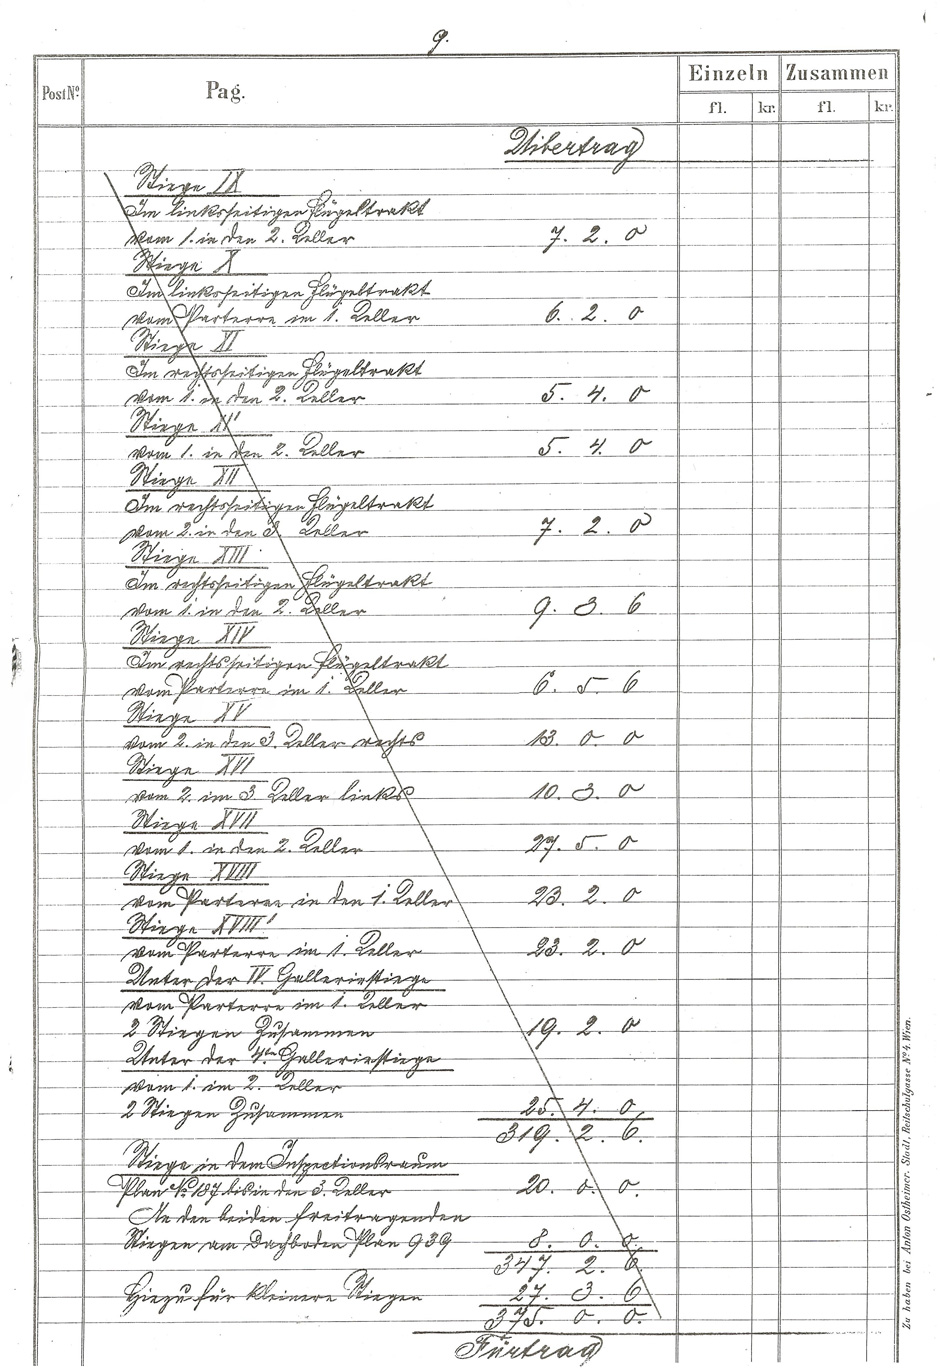 9.
Post No. Pag. Einzeln Zusammen
fl. kr. fl. kr.
Uibertrag
Stiege IX
Im linksseitigen Flügeltrakt
vom 1. in den 2. Keller 7. 2. 0
Stiege X
Im linksseitigen Flügeltrakt
vom Parterre im 1. Keller 6. 2. 0
Stiege XI
Im rechtsseitigen Flügeltrakt
vom 1. in den 2. Keller 5. 4. 0
Stiege XI'
vom 1. in den 2. Keller 5. 4. 0
Stiege XII
Im rechtsseitigen Flügeltrakt
vom 2. in den 3. Keller 7. 2. 0
Stiege XIII
Im rechtsseitigen Flügeltrakt
vom 1. in den 2. Keller 9. 3. 6
Stiege XIV
Im rechtsseitigen Flügeltrakt
vom Parterre im 1. Keller 6. 5. 6
Stiege XV
vom 2. in den 3. Keller rechts 13. 0. 0
Stiege XVI
vom 2. im 3. Keller links 10. 3. 0
Stiege XVII
vom 1. in den 2. Keller 27. 5. 0
Stiege XVIII
vom Parterre in den 1. Keller 23. 2. 0
Stiege XVIII'
vom Parterre im 1. Keller 23. 2. 0
Unter der IV. Galleriestiege
vom Parterre im 1. Keller
2 Stiegen Zusammen 19. 2. 0
Unter der 4ten Galleriestiege
vom 1. im 2. Keller
2 Stiegen Zusammen 25. 4. 0.
319. 2. 6.
Stiege in dem Inspectionsraum
Plan No. 187 bis in den 3. Keller 20. 0. 0.
An den beiden freitragenden
Stiegen am Dachboden Plan 939 8. 0. 0.
347. 2. 6.
Hiezu für kleinere Stiegen 27. 3. 6
375. 0. 0.
Fürtrag
Zu haben bei Anton Ostheimer. Stadt, Reitschulgasse No. 4. Wien.